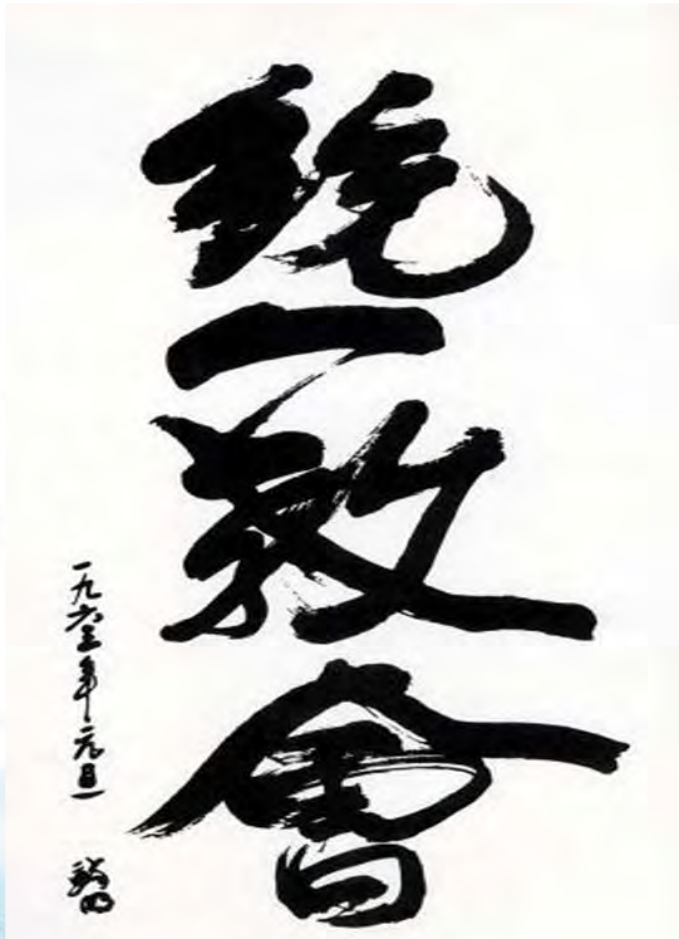 統一教會
一九六三年元旦
鮮明